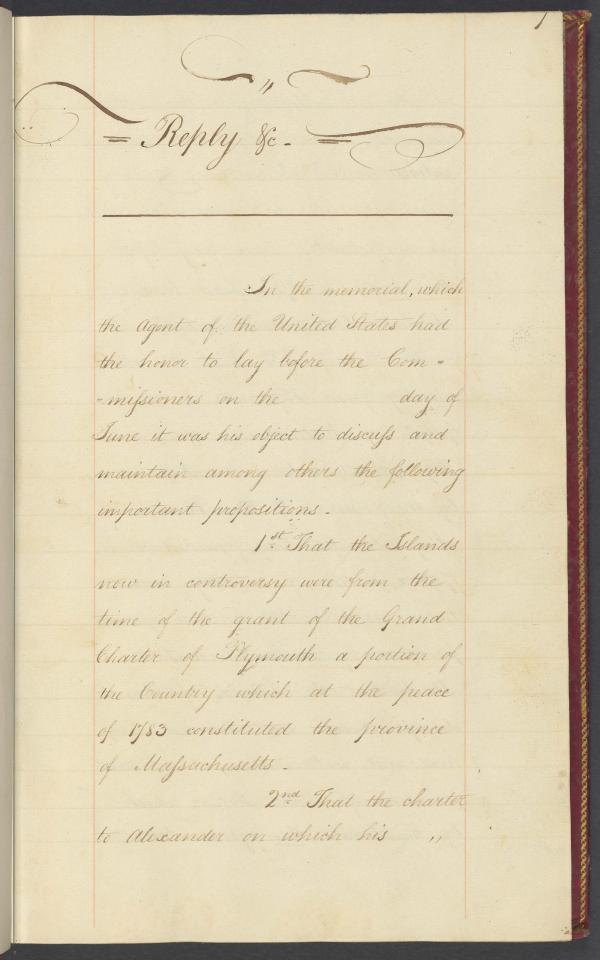 1
"
= Reply &c - =
In the memorial, which
the Agent of the United States had
the honor to lay before the Com-
-missioners on the day of
June it was his object to discuss and
maintain among others the following
important propositions -
1st That the Islands
now in controversy were from the
time of the grant of the Grand
Charter of Plymouth a portion of
the Country which at the peace
of 1783 constituted the province
of Massachusetts -
2nd That the charter
to Alexander on which his "